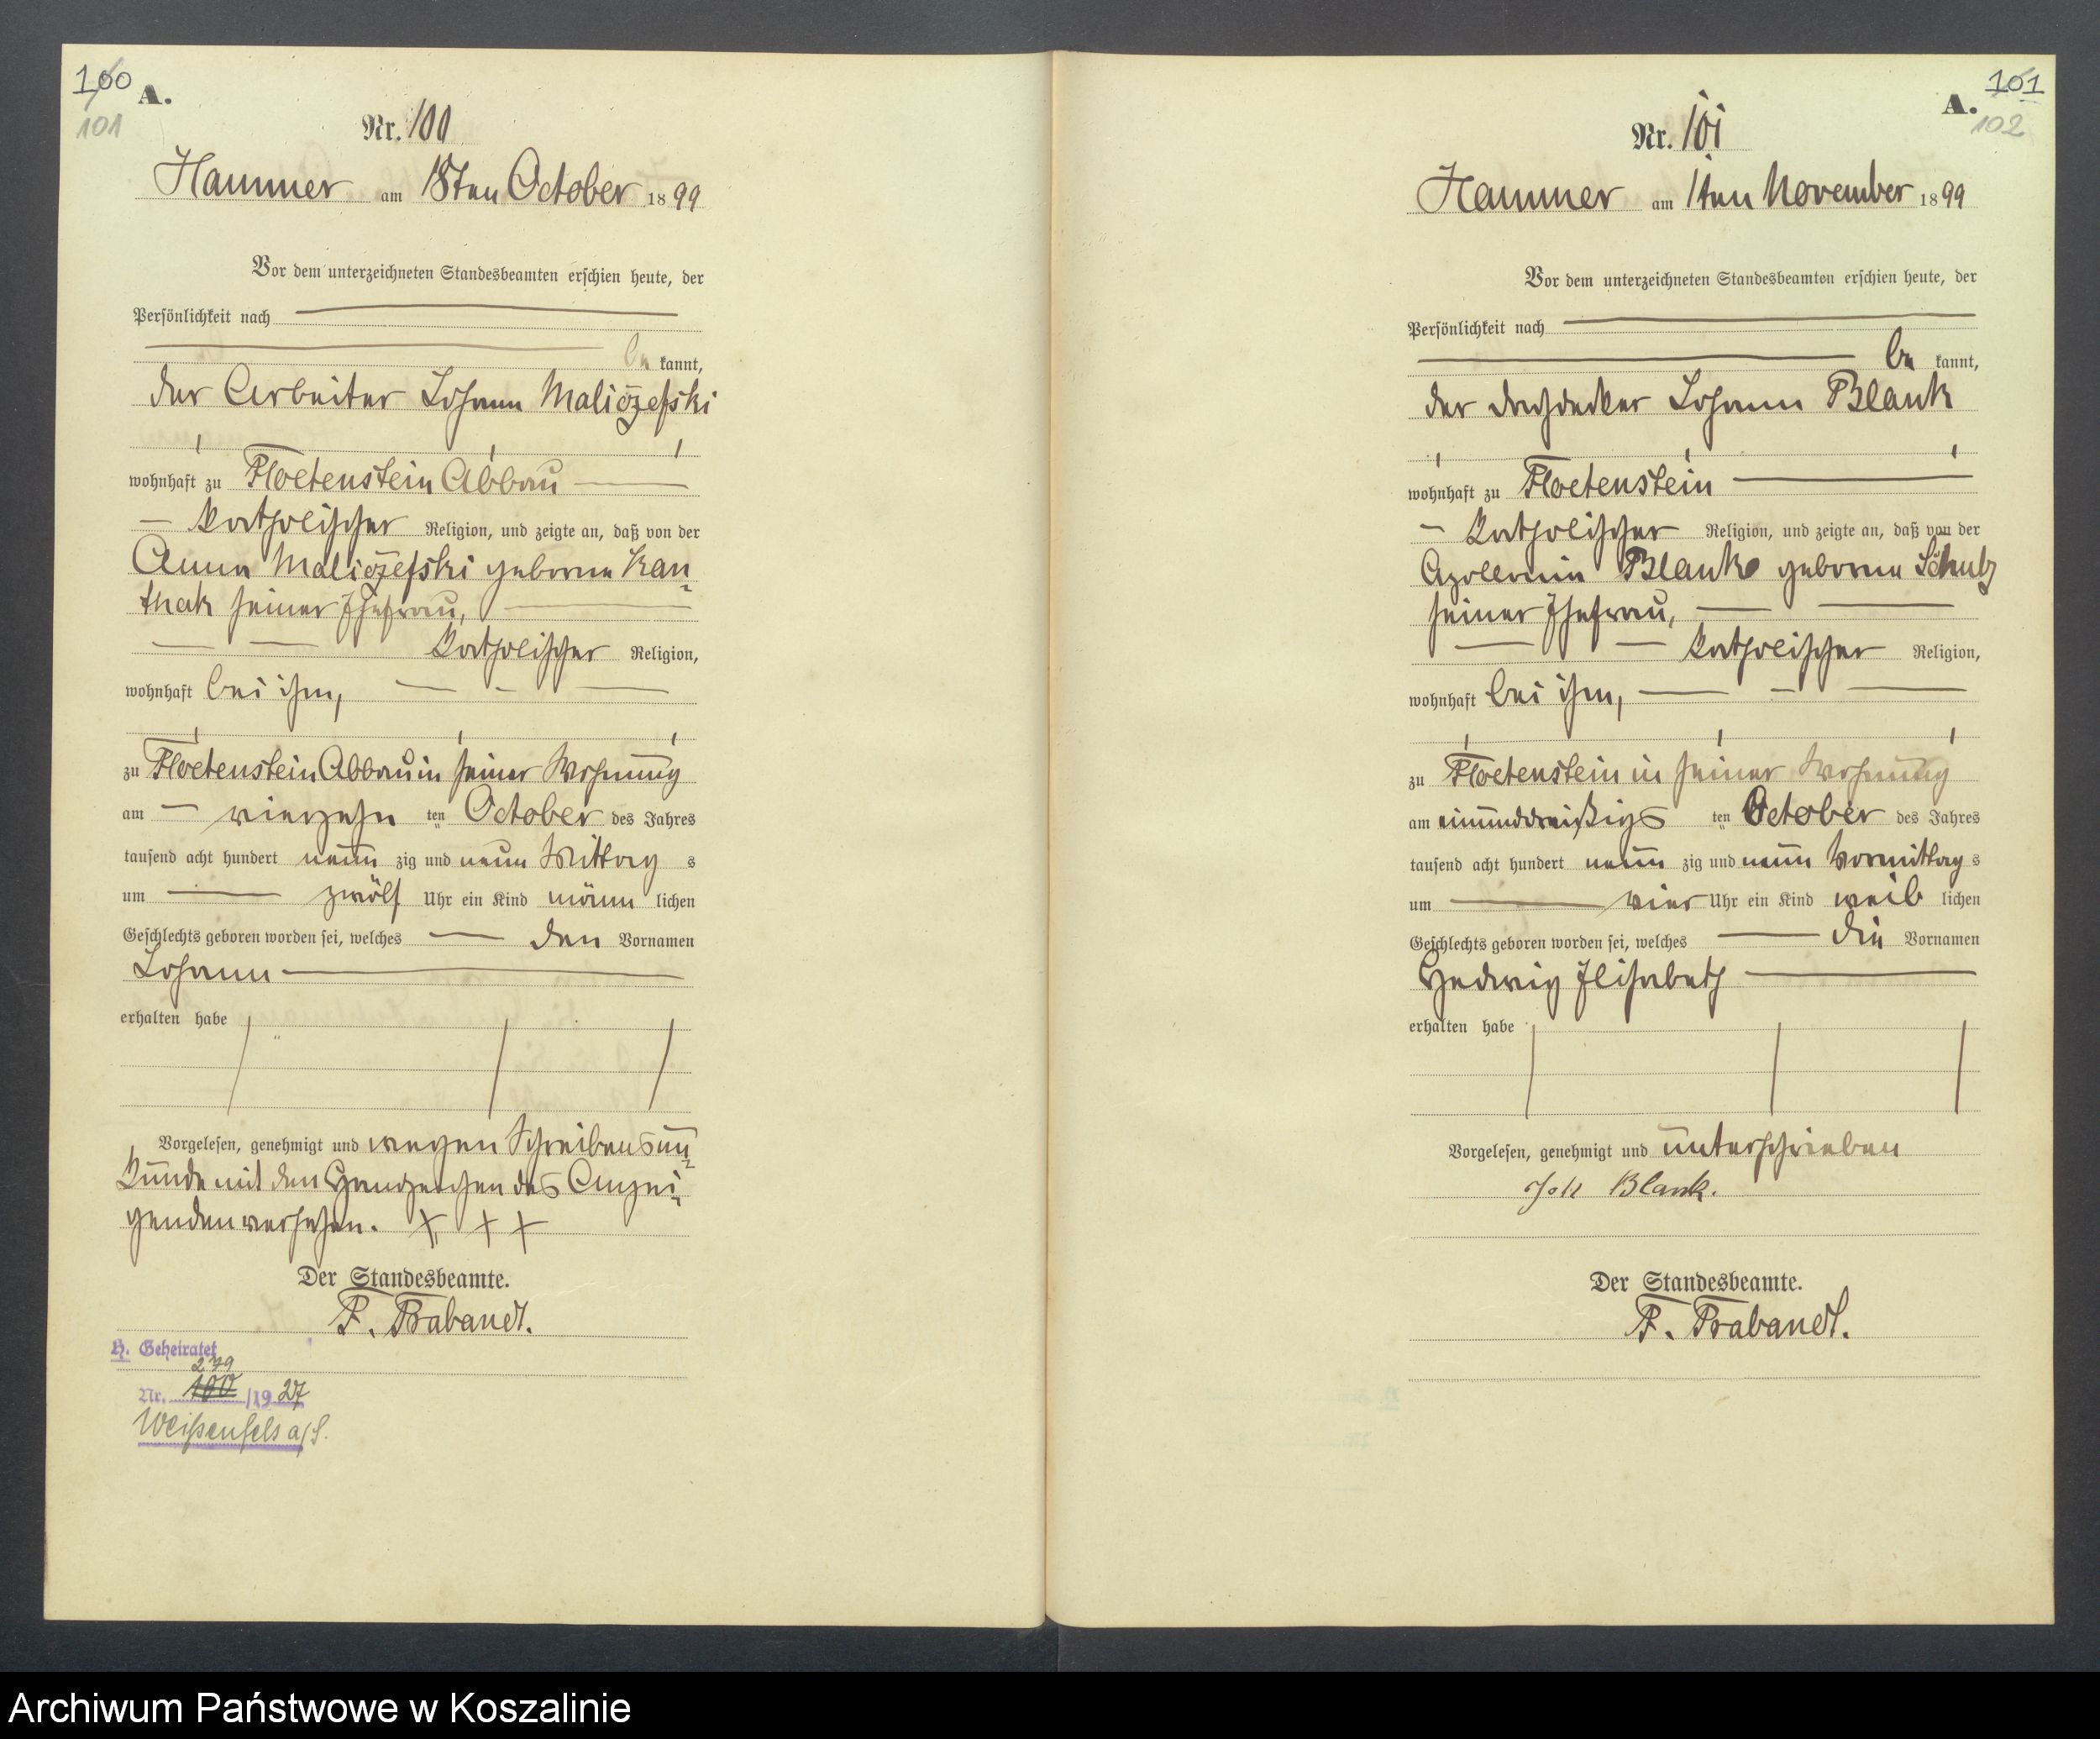 100
101
A.
Nr. 100
Hammer am 18ten October 1899
Vor dem unterzeichneten Standesbeamten erschien heute, der
Persönlichkeit nach
be kannt,
der Arbeiter Johann Maliczefski
wohnhaft zu Floetenstein Abbau
katholischer Religion, und zeigte an, daß von der
Anna Maliczefski geborne Kan-
thak seiner Ehefrau,
katholischer Religion,
wohnhaft bei ihm,
zu Floetenstein Abbau in seiner Wohnung
am vierzehn ten October des Jahres
tausend acht hundert neun zig und neun Mittag s
um zwölf Uhr ein Kind männ lichen
Geschlechts geboren worden sei, welches den Vornamen
Johann
erhalten habe
Vorgelesen, genehmigt und wegen Schreibensun-
kunde mit den Handzeichen des Anzei-
genden versehen. + + +
Der Standesbeamte.
F. Brabandt.
H. Geheiratet
279
Nr. 100 /1927
Weißenfels a/S.
101
A.
102
Nr. 101
Hammer am 1ten November 1899
Vor dem unterzeichneten Standesbeamten erschien heute, der
Persönlichkeit nach
be kannt,
der Dachdecker Johann Blank
wohnhaft zu Floetenstein
katholischer Religion, und zeigte an, daß von der
Apollonia Blank geborne Schulz
seiner Ehefrau,
katholischer Religion,
wohnhaft bei ihm,
zu Floetenstein in seiner Wohnung
am einunddreißigs ten October des Jahres
tausend acht hundert neun zig und neun Vormittag s
um vier Uhr ein Kind weib lichen
Geschlechts geboren worden sei, welches die Vornamen
Hedwig Elisabeth
erhalten habe
Vorgelesen, genehmigt und unterschrieben
Joh Blank.
Der Standesbeamte.
F. Brabandt.
Archiwum Państwowe w Koszalinie